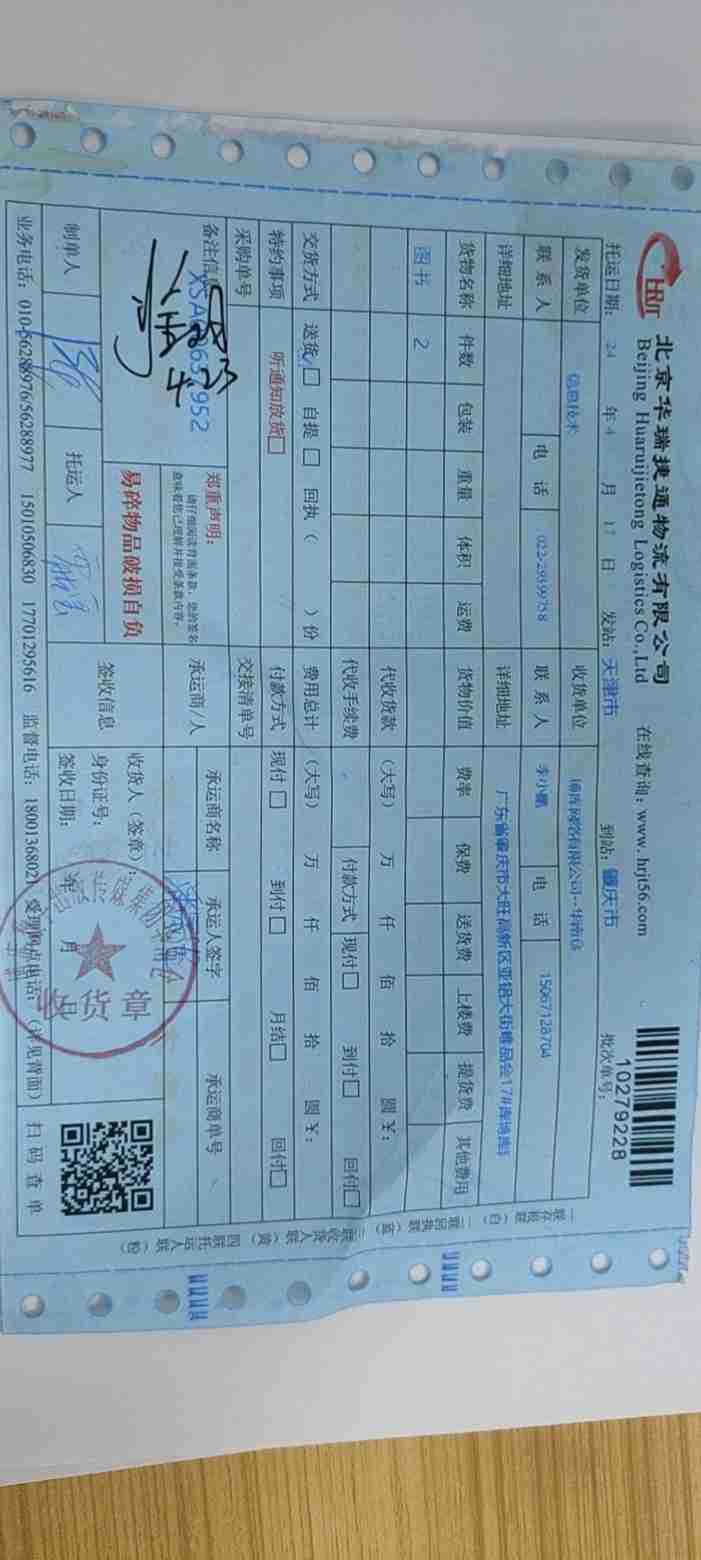 HRJT 北京华瑞捷通物流有限公司
Beijing Huaruijietong Logistics Co.,Ltd
在线查询：www.hrjt56.com
批次单号：
10279228
托运日期： 24 年 4 月 17 日 发站：天津市 到站：肇庆市
发货单位 信息技术 收货单位 博库网络有限公司--华南仓
联系人 电话 022-29399758 联系人 李小鹏 电话 15067128704
详细地址 详细地址 广东省肇庆市大旺高新区亚铝大街唯品会17#库博库
货物名称 件数 包装 重量 体积 运费 货物价值 费率 保费 送货费 上楼费 提货费 其他费用
图书 2
代收货款 （大写） 万 仟 佰 拾 圆￥：
代收手续费 付款方式 现付□ 到付□ 回付□
交货方式 送货□ 自提□ 回执（ ）份 费用总计 （大写） 万 仟 佰 拾 圆￥：
特约事项 听通知放货□ 付款方式 现付□ 到付□ 月结□ 回付□
采购单号 交接清单号
备注信息
4.23
郑重声明：
请仔细阅读背面条款，您的签名
意味着您已理解并接受条款内容。
易碎物品破损自负
承运商/人 承运商名称 承运人签字 承运商单号
签收信息 收货人（签章）：
身份证号：
签收日期： 年 月 日
收货章
制单人 托运人
扫码查单
业务电话：010-56288976/56288977 15010506830 17701295616 监督电话：18001368021 受理网点电话：（详见背面）
一联存根联（白） 二联回执联（蓝） 三联收货人联（黄） 四联托运人联（粉）